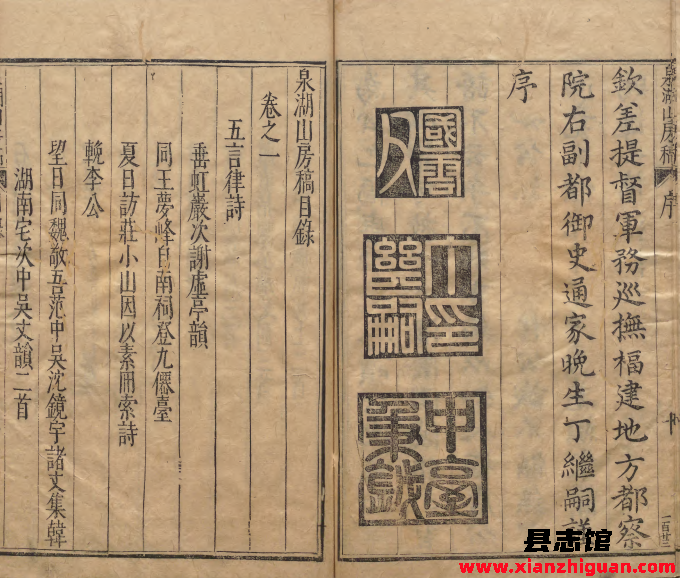 泉湖山房稿 序
欽差提督軍務巡撫福建地方都察
院右副都御史通家晚生丁繼嗣
序
國雲
丁繼嗣印
中丞秉鉞
一百廿二
泉湖山房稿目錄
卷之一
五言律詩
垂虹巖次謝虛亭韻
同王夢峰自南祠登九僊臺
夏日訪莊小山因以素冊索詩
輓李公
望日同魏敬吾范中吳沈鏡宇諸丈集韓
湖南宅次中吳丈韻二首
县志馆
www.xianzhiguan.com